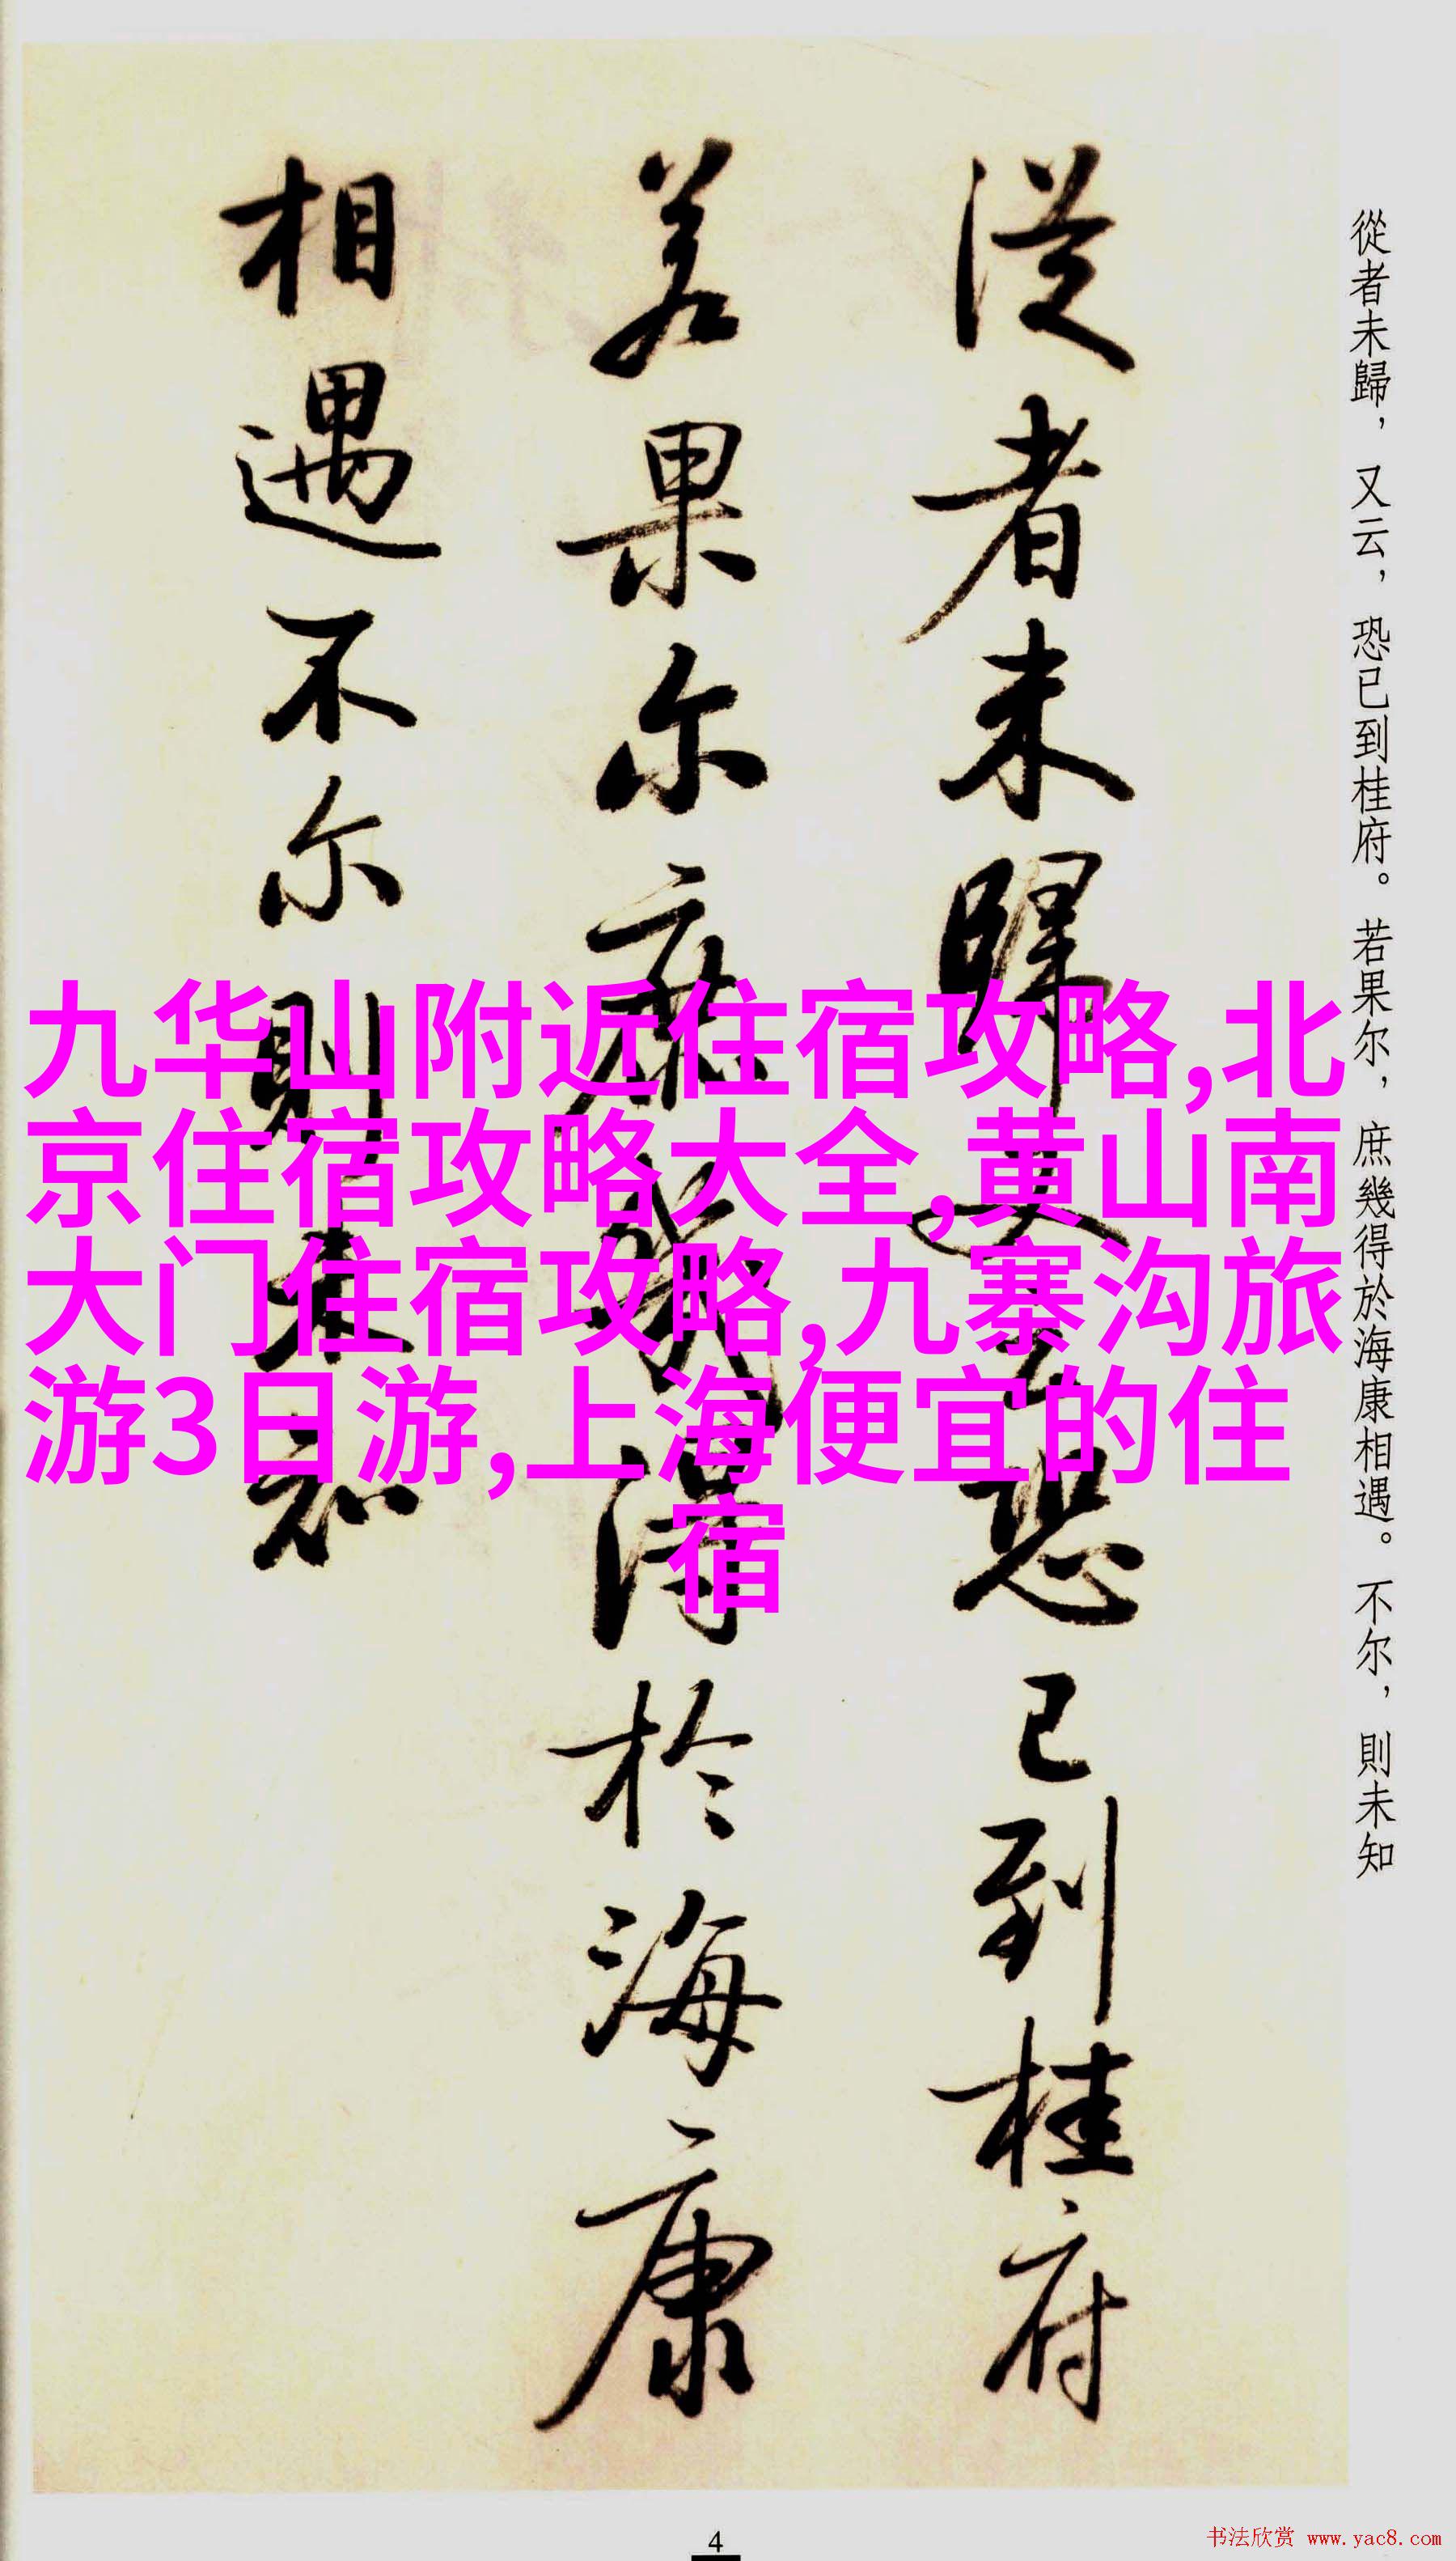 從者未歸，又云，恐已到桂府。若果尔，庶幾得於海康相遇。不尔，則未知
從者未歸又云恐已到桂府
若果尔庶幾得於海康
相遇不尔則未知
九华山附近住宿攻略,北
京住宿攻略大全,黄山南
大门住宿攻略,九寨沟旅
游3日游,上海便宜的住
宿
4
书法欣赏 www.yac8.com